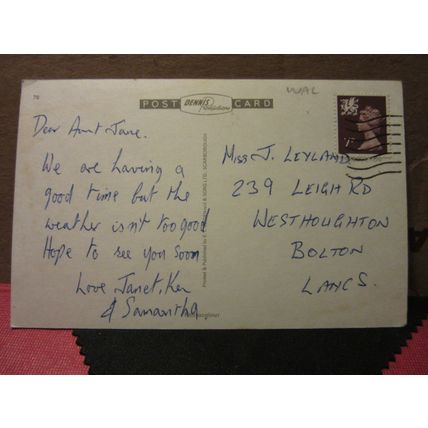 76
POST DENNIS Productions CARD
WAL
Dear Aunt Jane.
We are having a
good time but the
weather isn't too good
Hope to see you soon
Love Janet, Ken
& Samantha
Miss J. LEYLAND
239 LEIGH RD
WESTHOUGHTON
BOLTON
LANCS.
Printed & Published by & SONS LTD., SCARBOROUGH
7